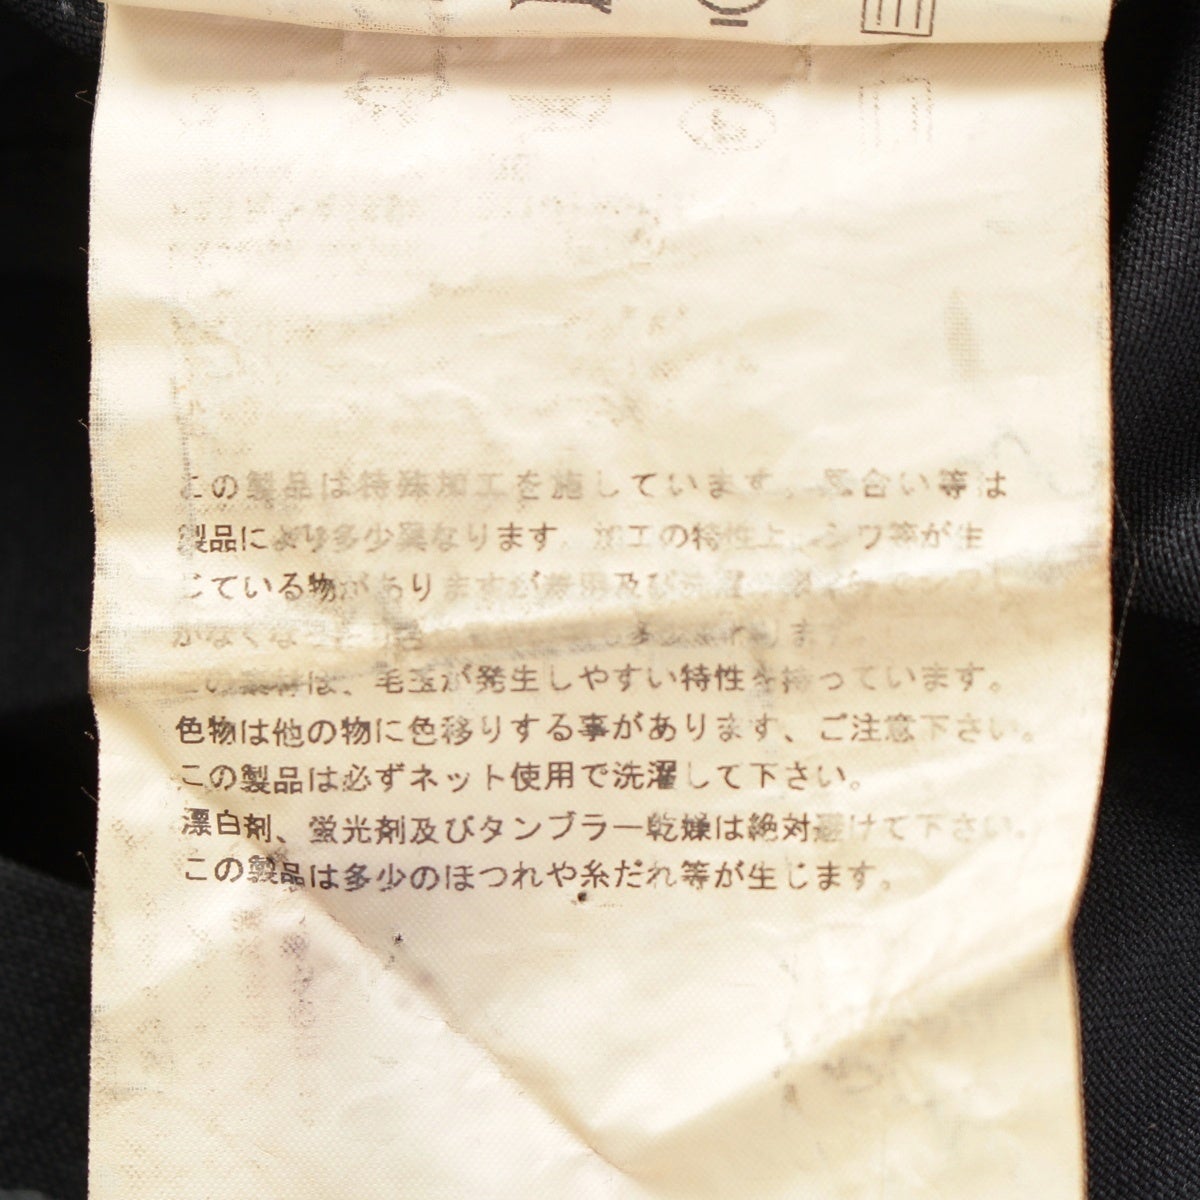 この製品は特殊加工を施しています。風合い等は
製品により多少異なります。加工の特性上、シワ等が生
じている物がありますが着用及び洗濯
がなくなっ
この素材は、毛玉が発生しやすい特性を持っています。
色物は他の物に色移りする事があります、ご注意下さい。
この製品は必ずネット使用で洗濯して下さい。
漂白剤、蛍光剤及びタンブラー乾燥は絶対避けて下さい。
この製品は多少のほつれや糸だれ等が生じます。